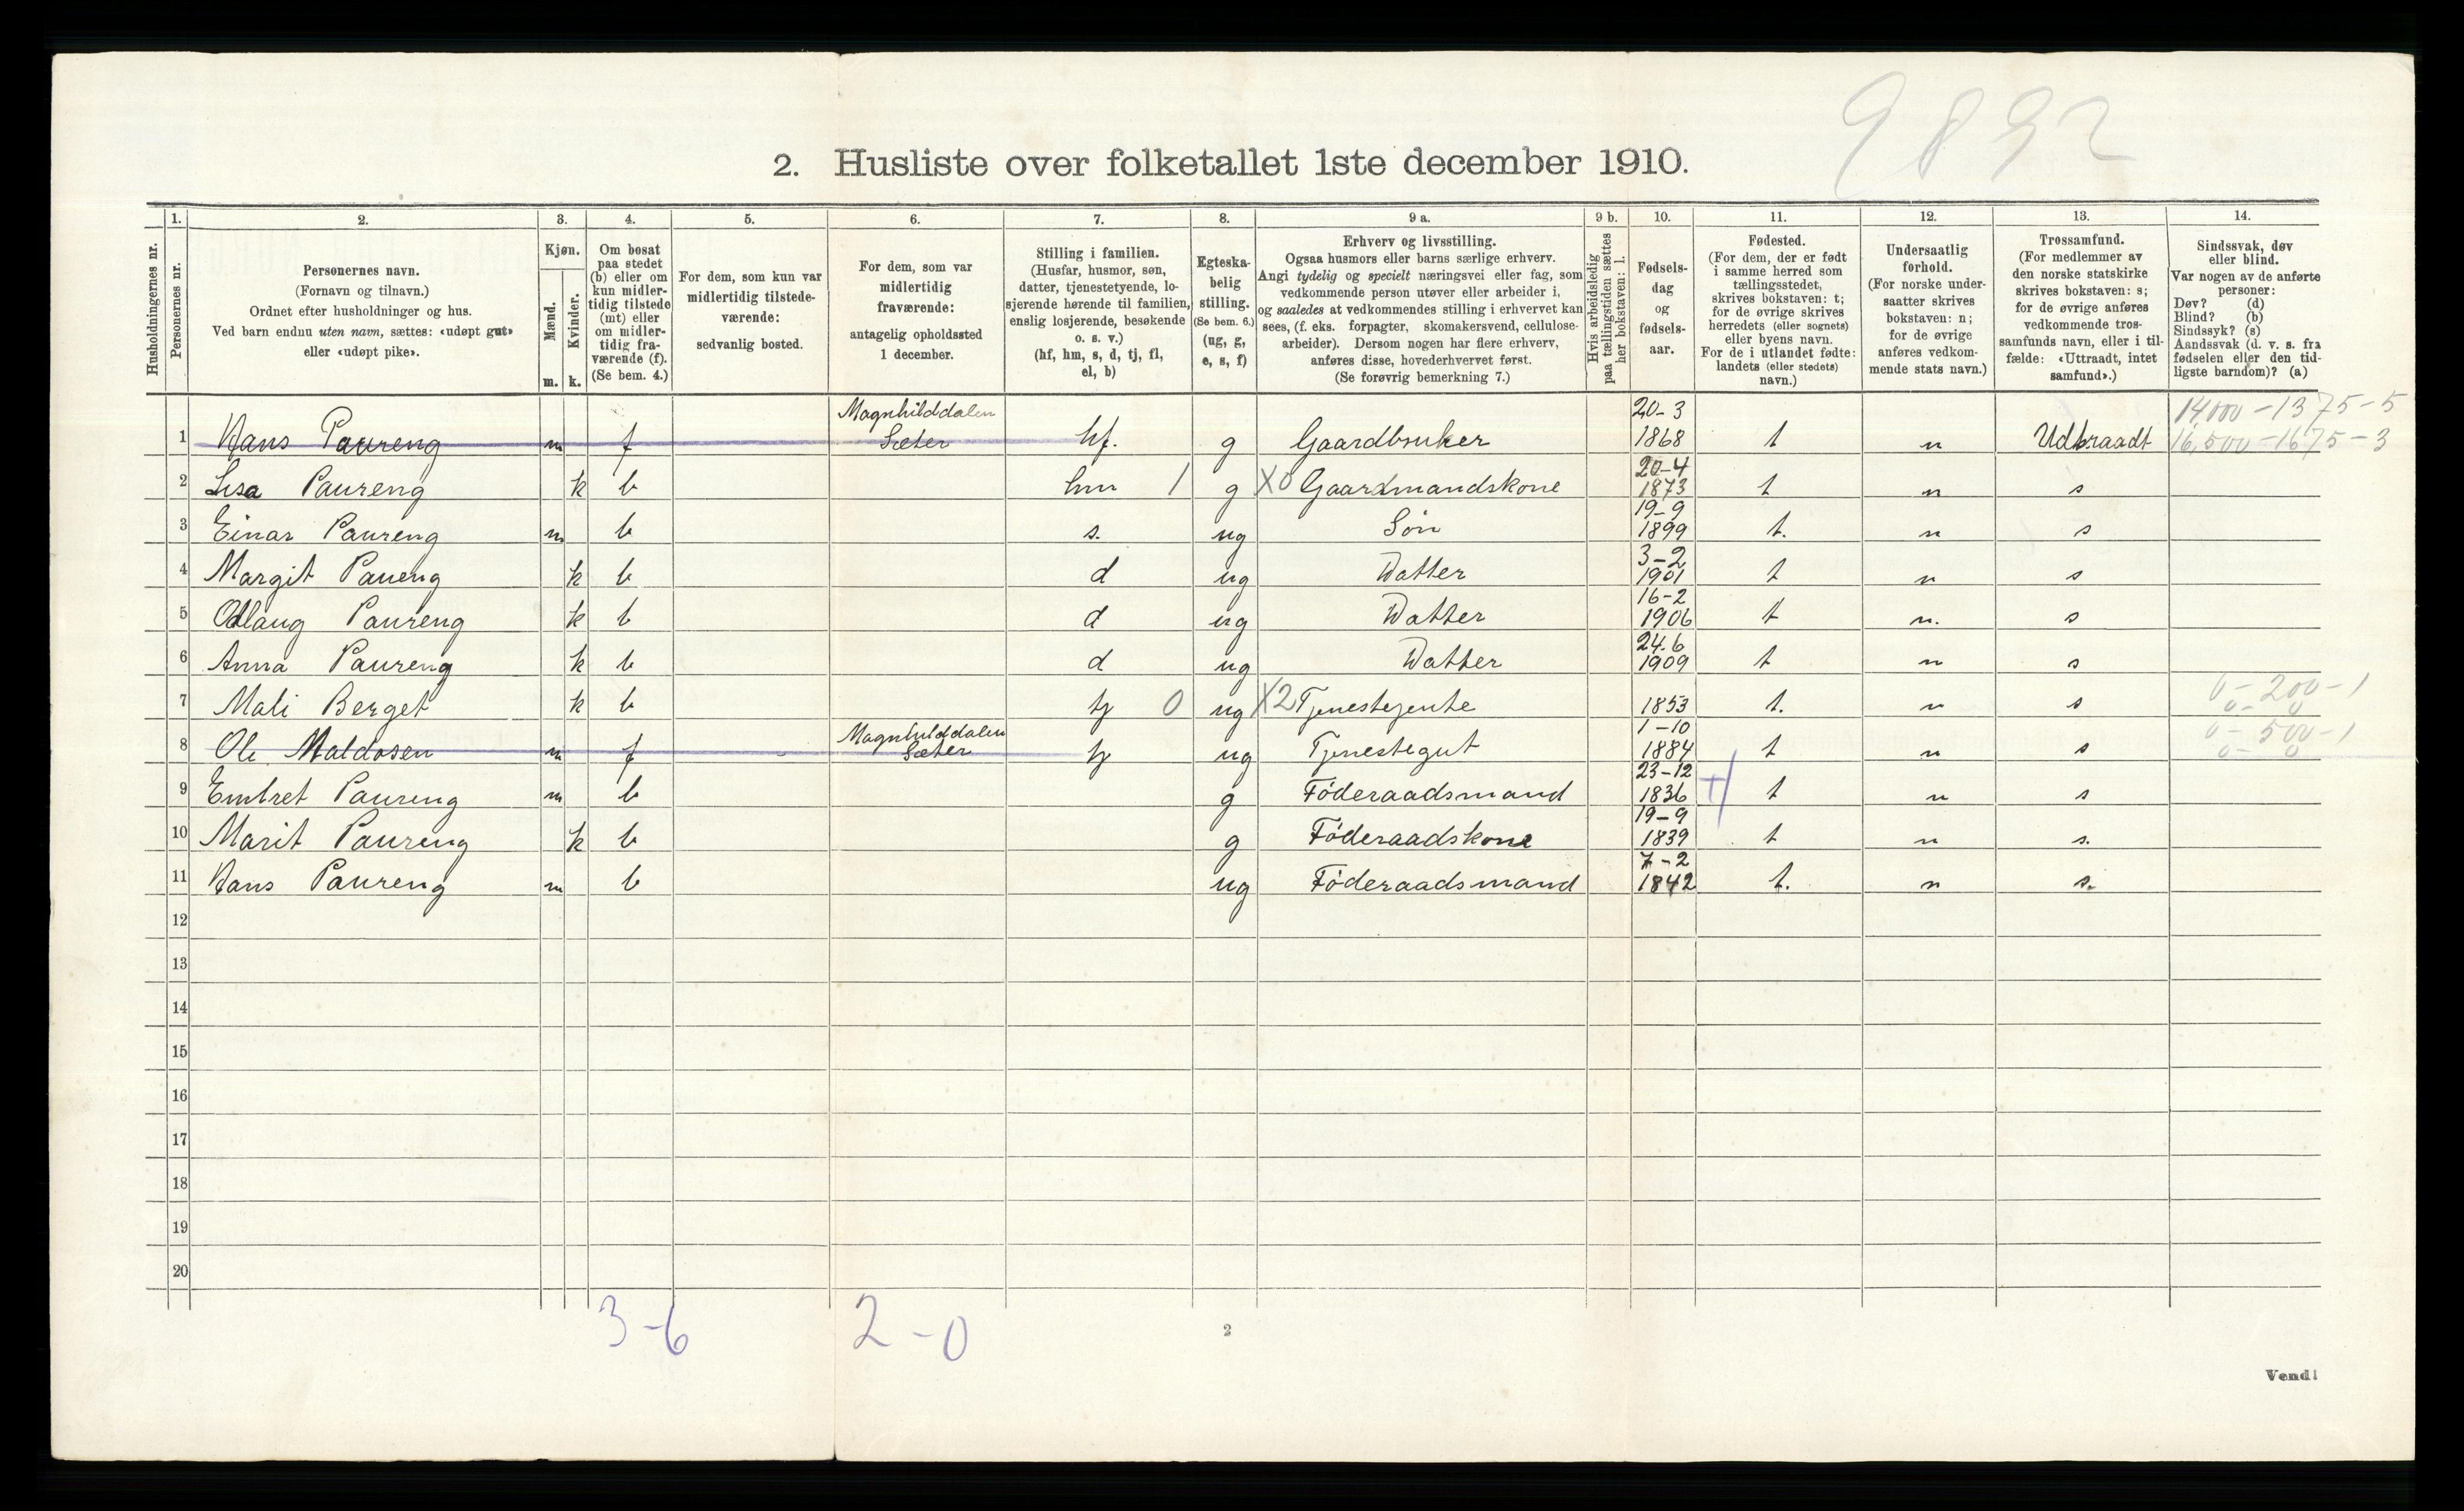 9892
2. Husliste over folketallet 1ste december 1910.
Husholdningernes nr.
1.
Personernes nr.
2.
Personernes navn.
(Fornavn og tilnavn.)
Ordnet efter husholdninger og hus.
Ved barn endnu uten navn, sættes: «udøpt gut»
eller «udøpt pike».
3.
Kjøn.
Mænd.
m.
Kvinder.
k.
4.
Om bosat
paa stedet
(b) eller om
kun midler-
tidig tilstede
(mt) eller
om midler-
tidig fra-
værende (f).
(Se bem. 4.)
5.
For dem, som kun var
midlertidig tilstede-
værende:
sedvanlig bosted.
6.
For dem, som var
midlertidig
fraværende:
antagelig opholdssted
1 december.
7.
Stilling i familien.
(Husfar, husmor, søn,
datter, tjenestetyende, lo-
sjerende hørende til familien,
enslig losjerende, besøkende
o. s. v.)
(hf, hm, s, d, tj, fl,
el, b)
8.
Egteska-
belig
stilling.
(Se bem. 6.)
(ug, g,
e, s, f)
9 a.
Erhverv og livsstilling.
Ogsaa husmors eller barns særlige erhverv.
Angi tydelig og specielt næringsvei eller fag, som
vedkommende person utøver eller arbeider i,
og saaledes at vedkommendes stilling i erhvervet kan
sees, (f. eks. forpagter, skomakersvend, cellulose-
arbeider). Dersom nogen har flere erhverv,
anføres disse, hovederhvervet først.
(Se forøvrig bemerkning 7.)
9 b.
Hvis arbeidsledig
paa tællingstiden sættes
her bokstaven: l.
10.
Fødsels-
dag
og
fødsels-
aar.
11.
Fødested.
(For dem, der er født
i samme herred som
tællingsstedet,
skrives bokstaven: t;
for de øvrige skrives
herredets (eller sognets)
eller byens navn.
For de i utlandet fødte:
landets (eller stedets)
navn.)
12.
Undersaatlig
forhold.
(For norske under-
saatter skrives
bokstaven: n;
for de øvrige
anføres vedkom-
mende stats navn.)
13.
Trossamfund.
(For medlemmer av
den norske statskirke
skrives bokstaven: s;
for de øvrige anføres
vedkommende tros-
samfunds navn, eller i til-
fælde: «Uttraadt, intet
samfund».)
14.
Sindssvak, døv
eller blind.
Var nogen av de anførte
personer:
Døv? (d)
Blind? (b)
Sindssyk? (s)
Aandssvak (d. v. s. fra
fødselen eller den tid-
ligste barndom)? (a)
Magnhilddalen 20-3 14,000-1375-5
1 Hans Paureng m f Sæter hf. g Gaardbruker 1868 t n Udtraadt 16,500-1675-3
20-4
2 Lisa Paureng k b hm 1 g X0 Gaardmandskone 1873 t n s
19-9
3 Einar Paureng m b s. ug Søn 1899 t. n s
3-2
4 Margit Paueng k b d ug Datter 1901 t n s
16-2
5 Odlaug Paureng k b d ug Datter 1906 t n. s
24.6
6 Anna Paureng k b d ug Datter 1909 t n s
0-200-1
7 Mali Berget k b tj 0 ug X2 Tjenestejente 1853 t. n s 0-0
Magnhilddalen 1-10 0-500-1
8 Ole Maldosen m f Sæter tj ug Tjenestegut 1884 t n s 0-0
23-12
9 Embret Paureng m b g Føderaadsmand 1836 t n s
19-9
10 Marit Paureng k b g Føderaadskone 1839 t n s.
7-2
11 Hans Paureng m b ug Føderaadsmand 1842 t. n s.
12
13
14
15
16
17
18
19
20
3-6 2-0
2
Vend!